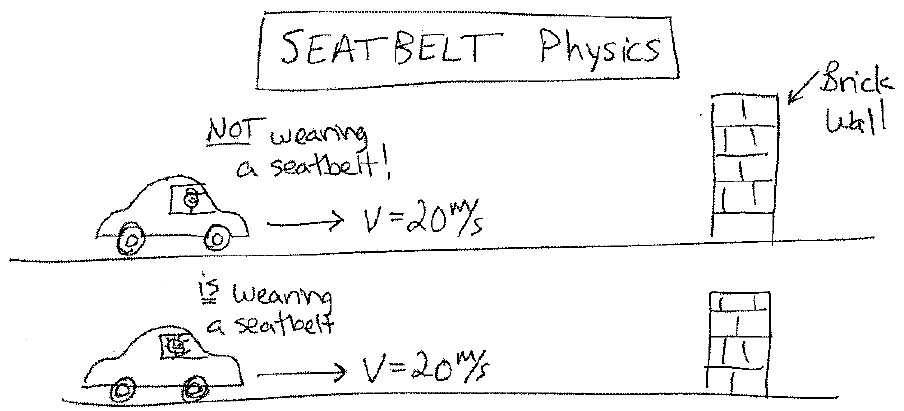 SEATBELT Physics
Brick
Wall
NOT wearing
a seatbelt!
V=20 m/s
is wearing
a seatbelt
V=20 m/s